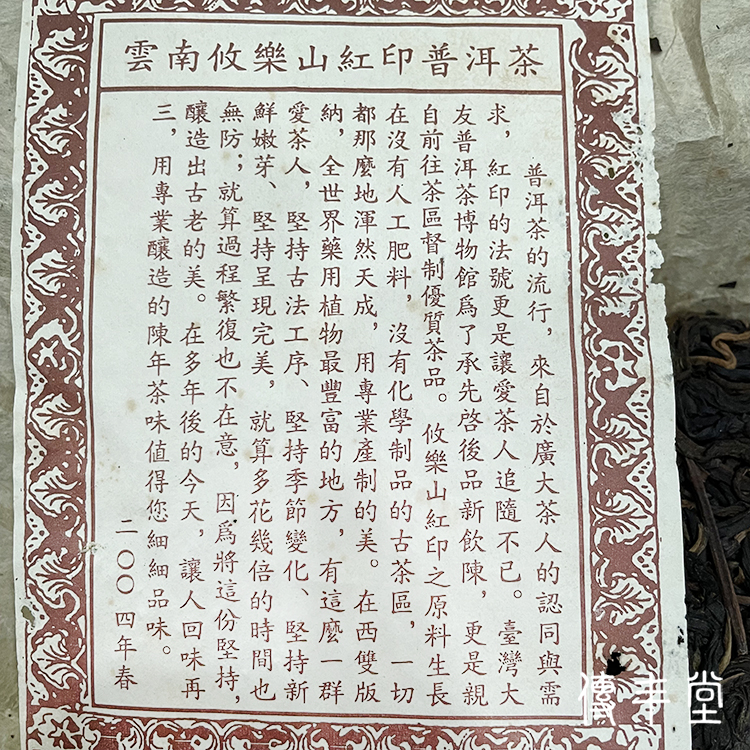 雲南攸樂山紅印普洱茶
普洱茶的流行，來自於廣大茶人的認同與需
求，紅印的法號更是讓愛茶人追隨不已。臺灣大
友普洱茶博物館為了承先啓後品新飲陳，更是親
自前往茶區督制優質茶品。攸樂山紅印之原料生長
在沒有人工肥料，沒有化學制品的古茶區，一切
都那麼地渾然天成，用專業產制的美。在西雙版
納，全世界藥用植物最豐富的地方，有這麼一群
愛茶人，堅持古法工序、堅持季節變化、堅持新
鮮嫩芽、堅持呈現完美，就算多花幾倍的時間也
無防；就算過程繁復也不在意，因為將這份堅持，
釀造出古老的美。在多年後的今天，讓人回味再
三，用專業釀造的陳年茶味值得您細細品味。
二〇〇四年春
傳年堂